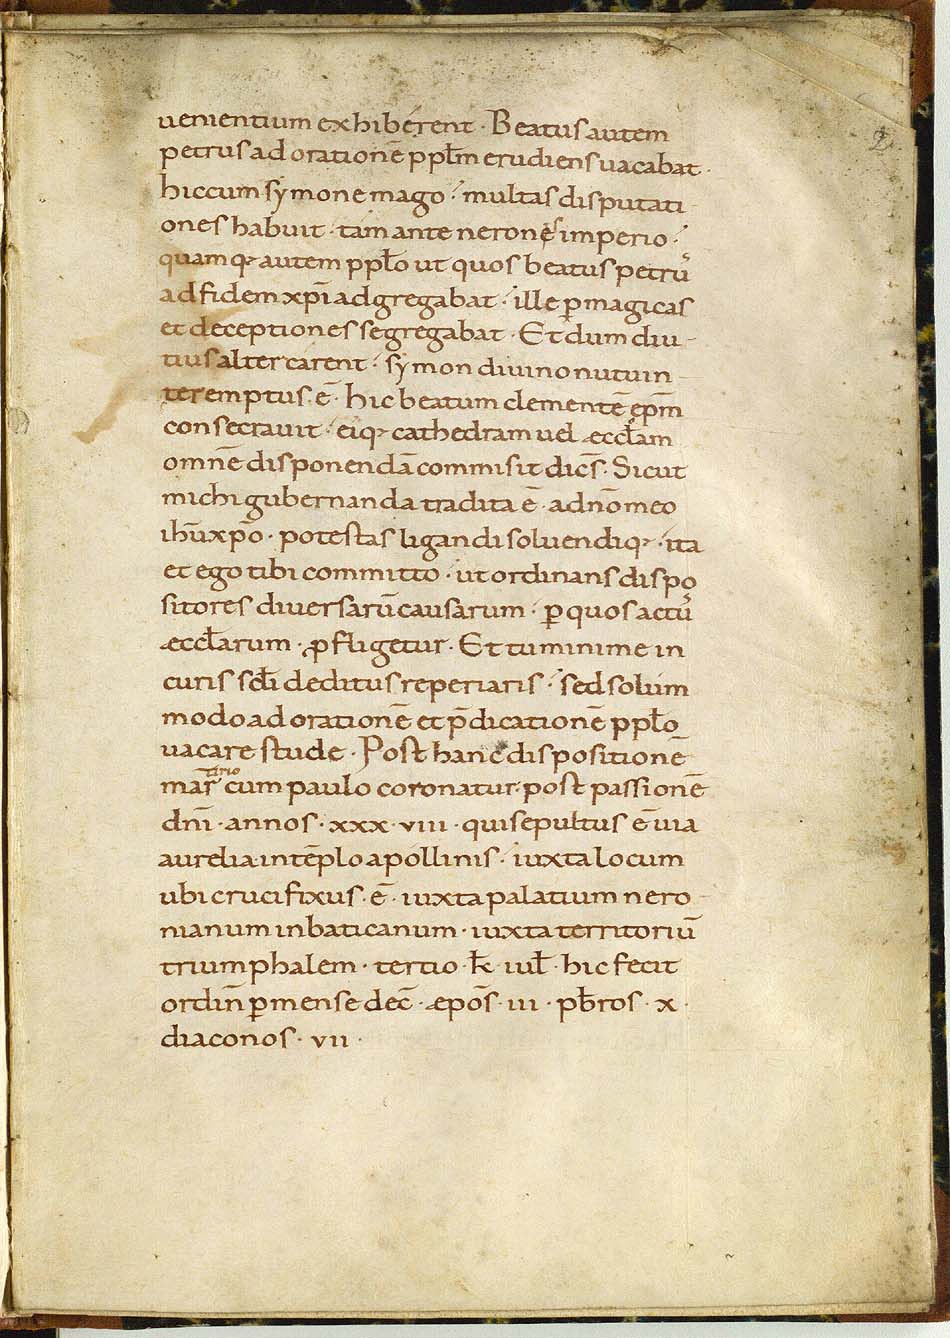 2
uenientium exhiberent · Beatus autem
petrus ad orationē pplm̄ erudiens uacabat ·
hic cum symone mago · multas disputati
ones habuit · tam ante neronēs imperio ·
quamq; autem pplo ut quos beatus petrū
ad fidem xp̄i adgregabat · ille ꝑ magicas
et deceptiones segregabat · Et dum diu-
tius altercarent · symon diuino nutu in
teremptus · ē · hic beatum clementē ep̄m
consecrauit · eiq; cathedram uel æccłam
omnē disponendā commisit dic̄s · Sicut
michi gubernanda tradita ē · ad nōmeo
ih̄u xp̄o · potestas ligandi soluendiq; · ita
et ego tibi committo · ut ordinans dispo
sitores diuersarū causarum · ꝑ quos actū
æccłarum · ꝓfligetur · Et tu minime in
curis sc̄łi deditus reperiaris · sed solum
modo ad orationē et p̄dicationē ppło
uacare stude · Post hanc dispositionē
mar̄tirio cum paulo coronatur · post passionē
dn̄i · annos · xxx · viii · qui sepultus ē uia
aurelia in tēplo apollinis · iuxta locum
ubi crucifixus · ē · iuxta palatium nero
nianum in baticanum · iuxta territoriū
triumphalem · tertio · kł · iuł · hic fecit
ordin̄ ꝑ mense dec̄ · æpōs · iii · pb̄ros · x ·
diaconos · vii ·